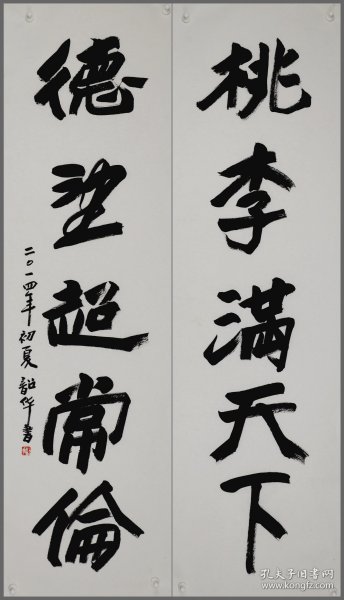 桃李滿天下
德望超常倫
二〇一四年初夏韶华書
孔夫子旧书网
www.kongfz.com